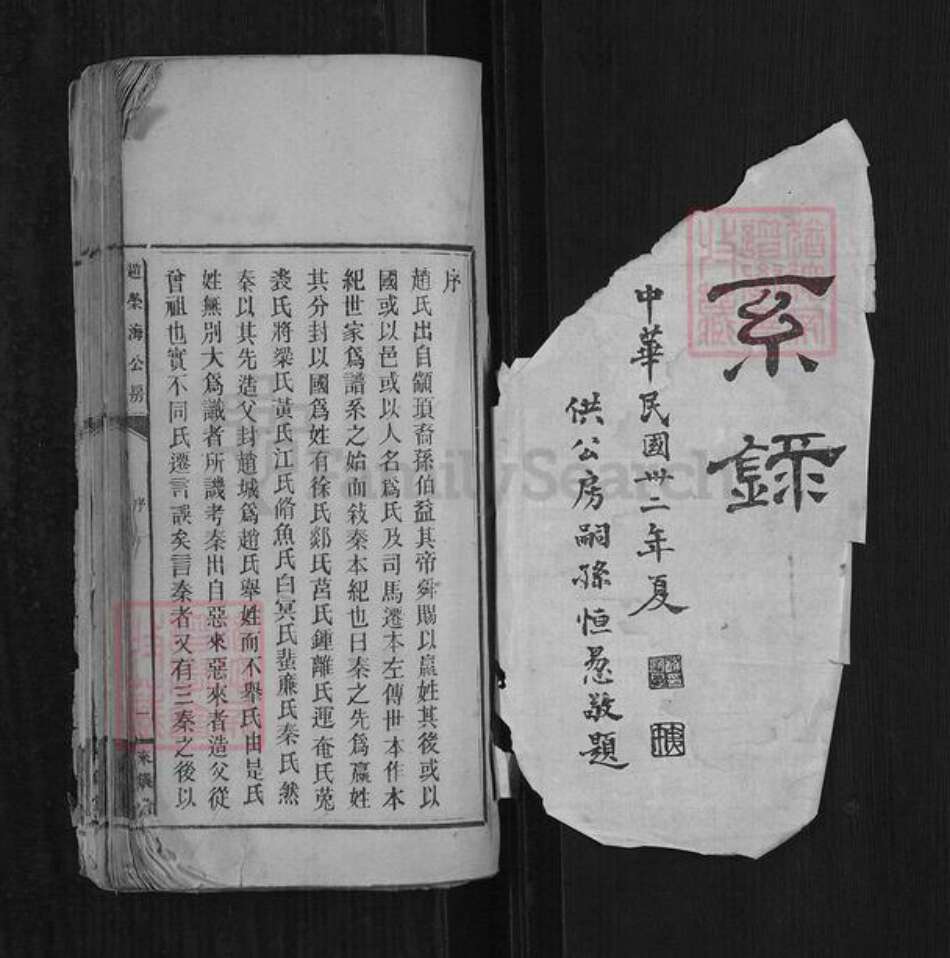 系錄
中華民國卅二年夏
供公房嗣孫恒愚敬題
序
趙氏出自顓頊裔孫伯益其帝舜賜以嬴姓其後或以
國或以邑或以人名爲氏及司馬遷本左傳世本作本
紀世家爲譜系之始而敍秦本紀也曰秦之先爲嬴姓
其分封以國爲姓有徐氏郯氏莒氏鍾離氏運奄氏菟
裘氏將梁氏黃氏江氏脩魚氏白冥氏蜚廉氏秦氏然
秦以其先造父封趙城爲趙氏舉姓而不舉氏由是氏
姓無別大爲識者所譏考秦出自惡來惡來者造父從
曾祖也實不同氏遷言誤矣言秦者又有三秦之後以
趙榮海公房
序
一
FamilySearch